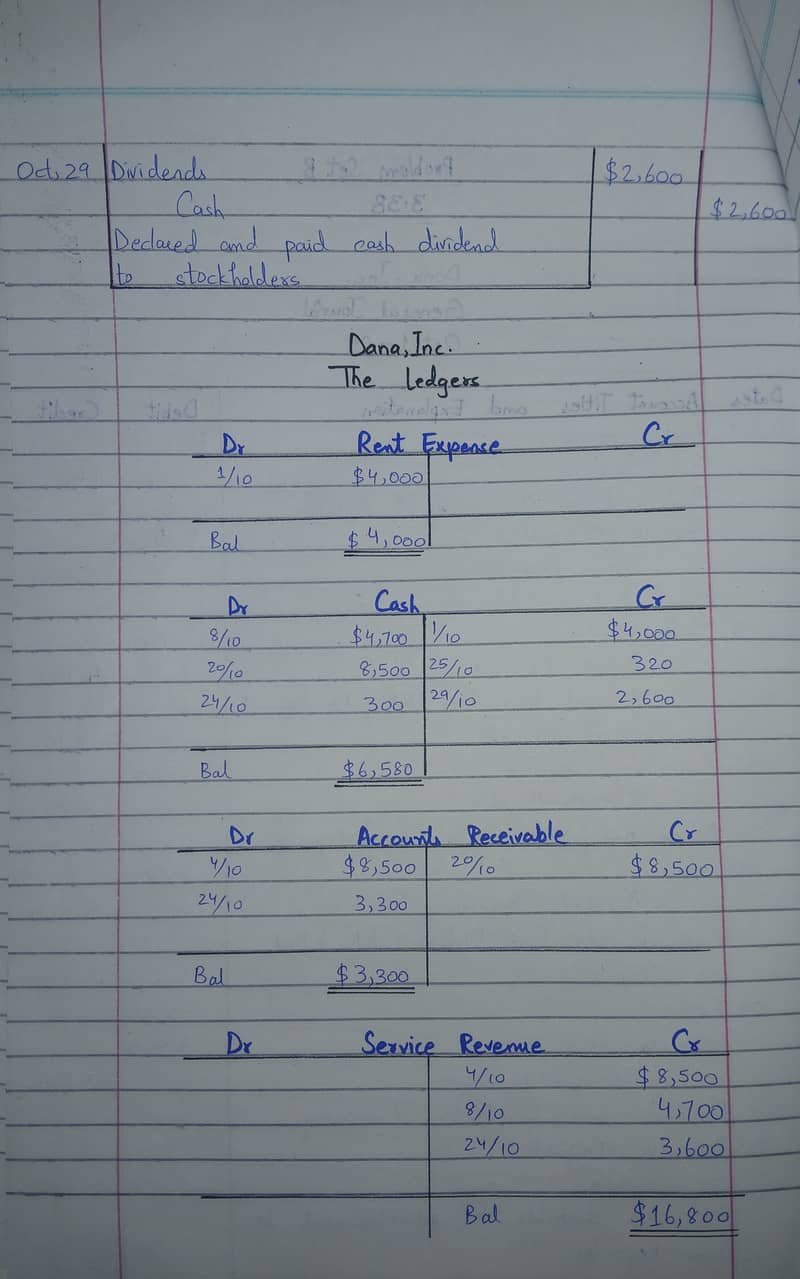 Oct, 29 Dividends $2,600
Cash $2,600
Declared and paid cash dividend
to stockholders
Dana, Inc.
The Ledgers
Dr Rent Expense Cr
1/10 $4,000
Bal $4,000
Dr Cash Cr
8/10 $4,700 1/10 $4,000
20/10 8,500 25/10 320
24/10 300 29/10 2,600
Bal $6,580
Dr Accounts Receivable Cr
4/10 $8,500 20/10 $8,500
24/10 3,300
Bal $3,300
Dr Service Revenue Cr
4/10 $8,500
8/10 4,700
24/10 3,600
Bal $16,800